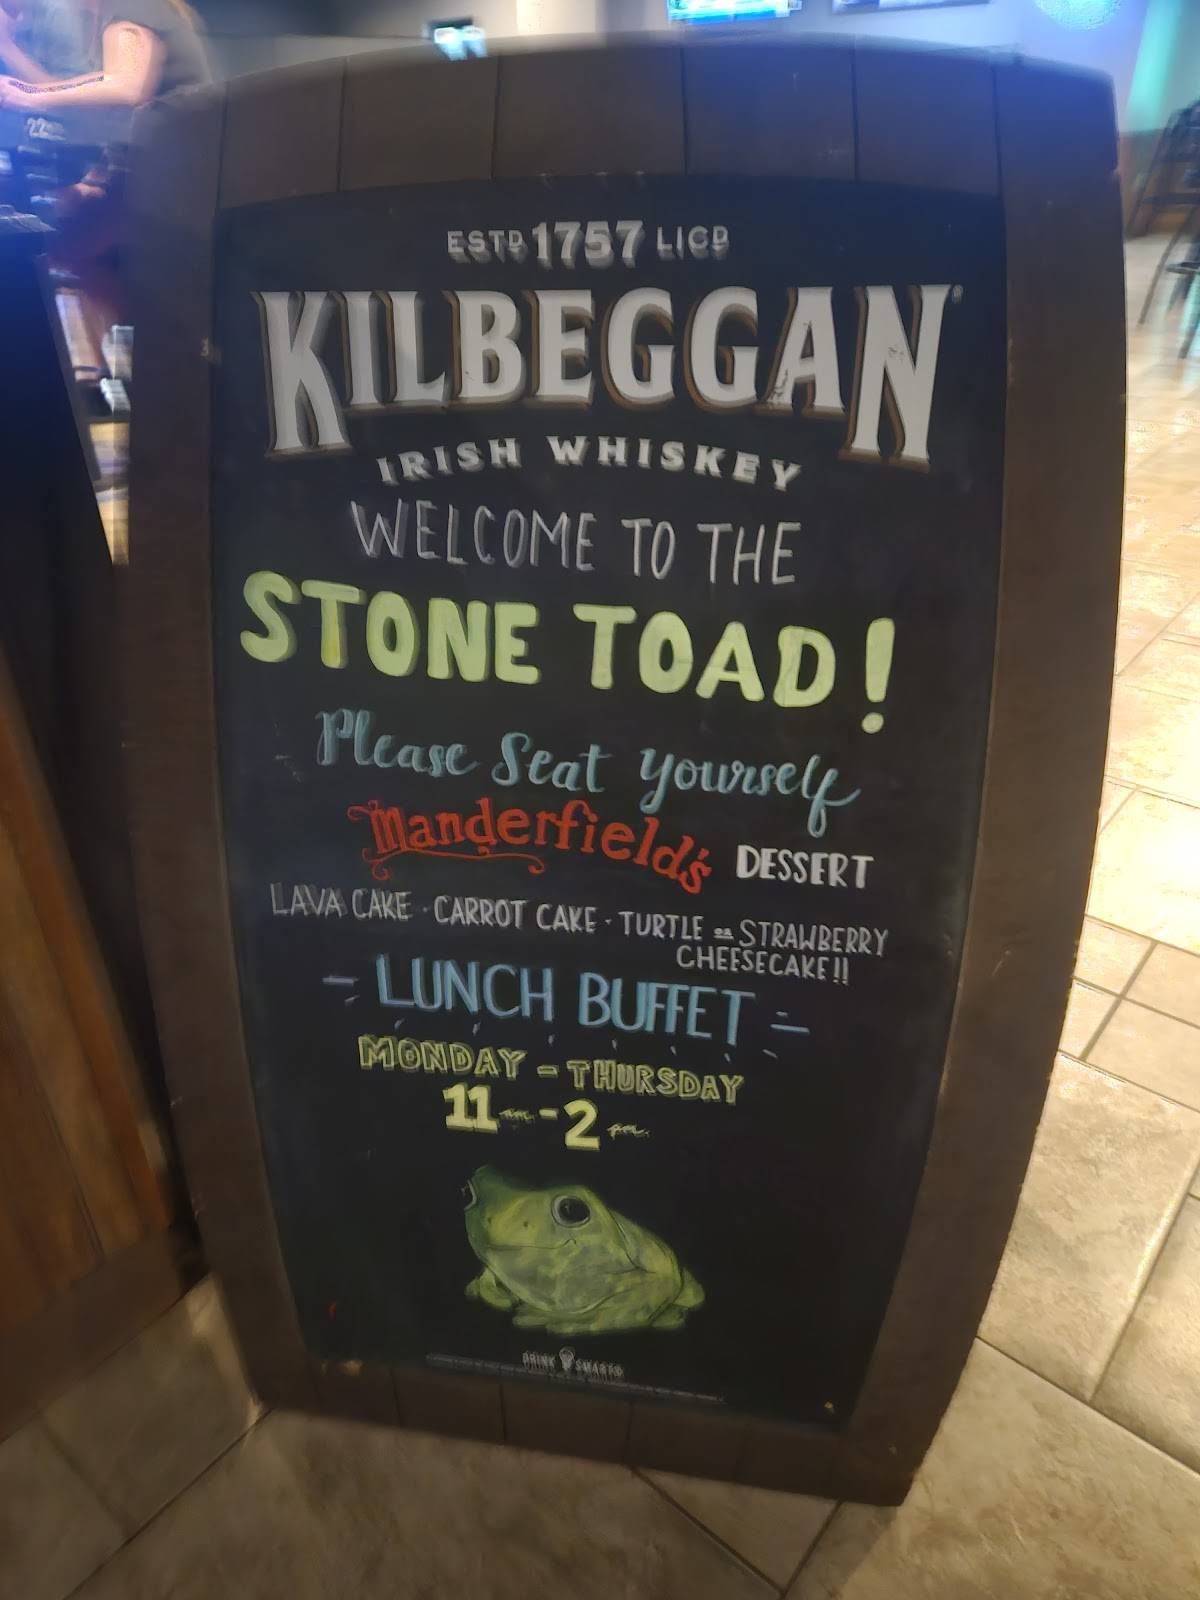 ESTD 1757 LICD
KILBEGGAN®
IRISH WHISKEY
WELCOME TO THE
STONE TOAD!
Please Seat Yourself
Manderfield's DESSERT
LAVA CAKE · CARROT CAKE · TURTLE OR STRAWBERRY
CHEESECAKE!!
- LUNCH BUFFET -
MONDAY - THURSDAY
11 am - 2 pm
DRINK SMART®
22